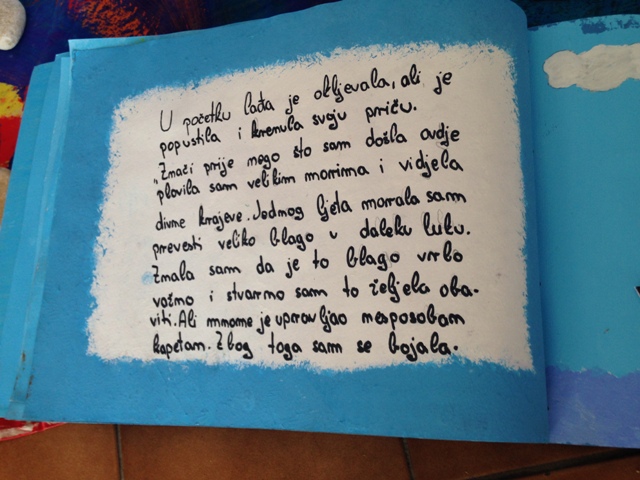 U početku lađa je oklijevala, ali je
popustila i krenula svoju priču.
"Znači prije nego što sam došla ovdje
plovila sam velikim morima i vidjela
divne krajeve. Jednog ljeta morala sam
prevesti veliko blago u daleku luku.
Znala sam da je to blago vrlo
važno i stvarno sam to željela oba-
viti. Ali mnome je upravljao nesposoban
kapetan. Zbog toga sam se bojala.